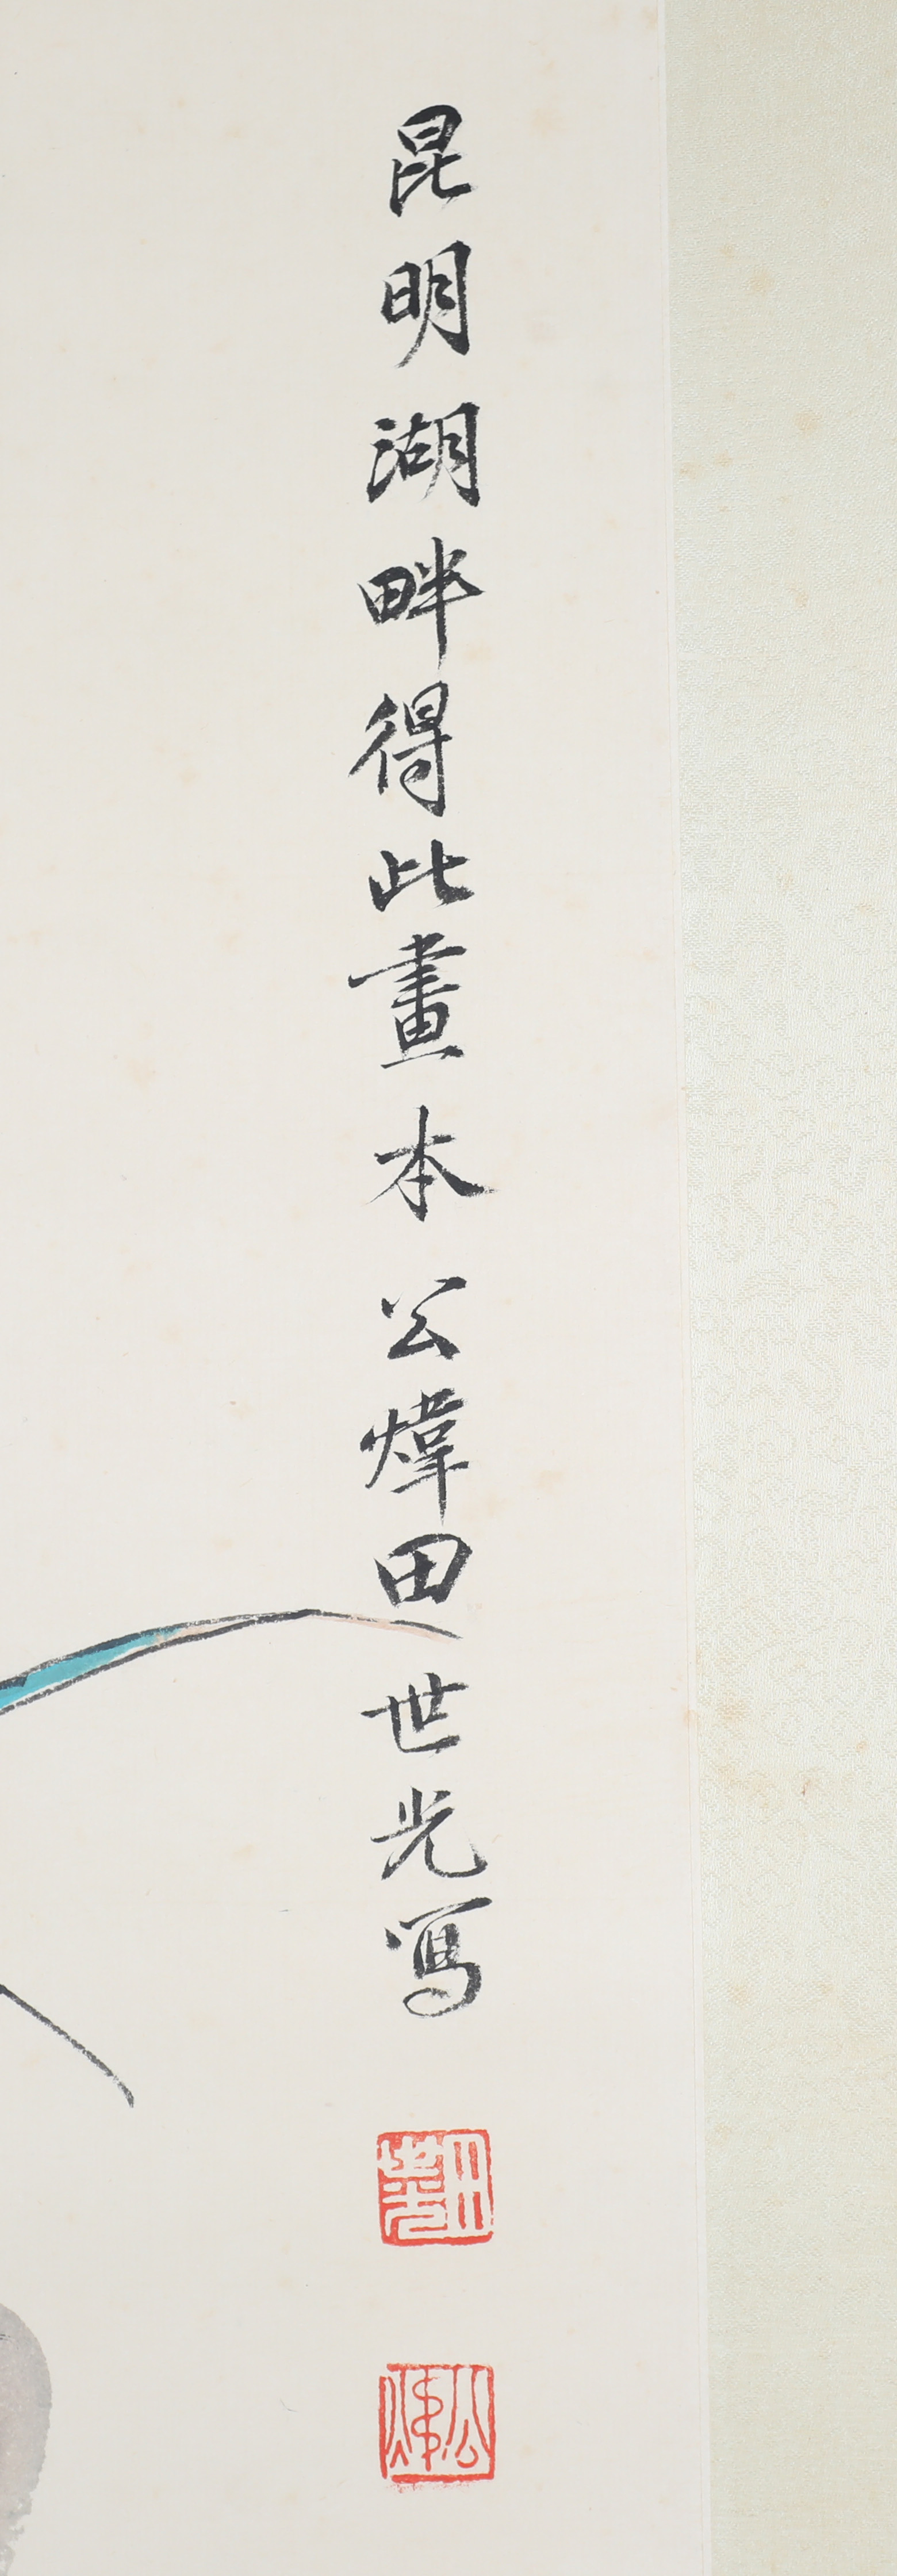 昆明湖畔得此畫本公煒田世光寫
田世光
公煒